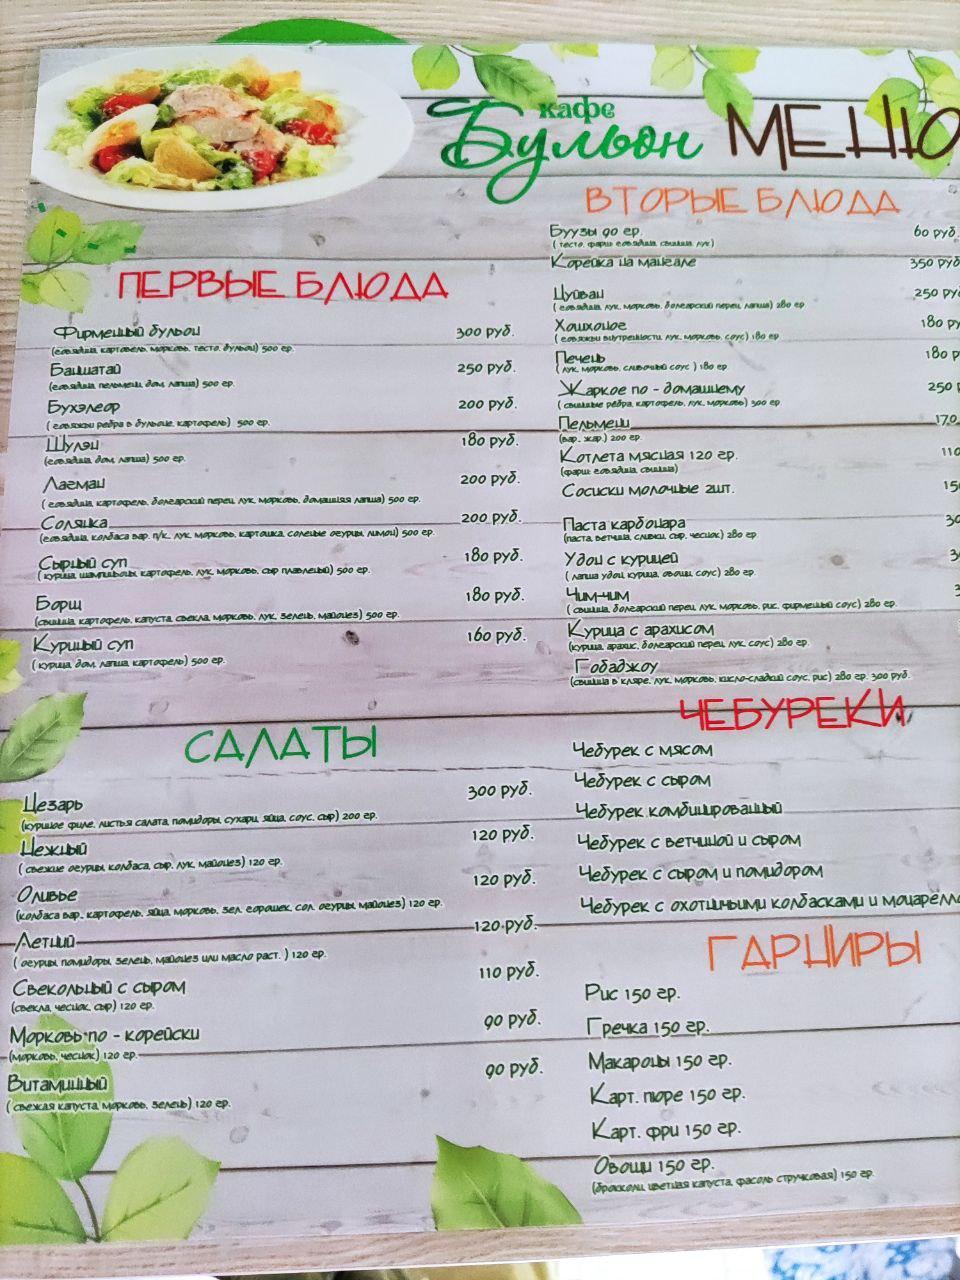 кафе
Бульон МЕНЮ
ПЕРВЫЕ БЛЮДА
Фирменный бульон 300 руб.
(говядина, картофель, морковь, тесто, бульон) 500 гр.
Баншатай 250 руб.
(говядина, пельмени, дом. лапша) 500 гр.
Бухэлеор 200 руб.
(говяжьи ребра в бульоне, картофель) 500 гр.
Шулэн 180 руб.
(говядина, дом. лапша) 500 гр.
Лагман 200 руб.
(говядина, картофель, болгарский перец, лук, морковь, домашняя лапша) 500 гр.
Солянка 200 руб.
(говядина, колбаса вар. п/к., лук, морковь, картошка, соленые огурцы, лимон) 500 гр.
Сырный суп 180 руб.
(курица, шампиньоны, картофель, лук, морковь, сыр плавленый) 500 гр.
Борщ 180 руб.
(свинина, картофель, капуста, свекла, морковь, лук, зелень, майонез) 500 гр.
Куриный суп 160 руб.
(курица, дом. лапша, картофель) 500 гр.
САЛАТЫ
Цезарь 300 руб.
(куриное филе, листья салата, помидоры, сухари, яйца, соус, сыр) 200 гр.
Нежный 120 руб.
(свежие огурцы, колбаса, сыр, лук, майонез) 120 гр.
Оливье 120 руб.
(колбаса вар., картофель, яйца, морковь, зел. горошек, сол. огурцы, майонез) 120 гр.
Летний 120 руб.
(огурцы, помидоры, зелень, майонез или масло раст. ) 120 гр.
Свекольный с сыром 110 руб.
(свекла, чеснок, сыр) 120 гр.
Морковь по - корейски 90 руб.
(морковь, чеснок) 120 гр.
Витаминный 90 руб.
(свежая капуста, морковь, зелень) 120 гр.
ВТОРЫЕ БЛЮДА
Буузы 90 гр. 60 руб.
(тесто, фарш: говядина, свинина, лук)
Корейка на мангале 350 руб.
Цуйван 250 руб
(говядина, лук, морковь, болгарский перец, лапша) 280 гр
Хошхоног 180 ру
(говяжьи внутренности, лук, морковь, соус) 180 гр
Печень 180 р
(лук, морковь, сливочный соус ) 180 гр
Жаркое по - домашнему 250
(свиные ребра, картофель, лук, морковь) 300 гр.
Пельмени 170
(вар., жар.) 200 гр.
Котлета мясная 120 гр. 110
(фарш: говядина, свинина)
Сосиски молочные 2шт.
Паста карбонара
(паста, ветчина, сливки, сыр, чеснок) 280 гр.
Удон с курицей
(лапша удон, курица, овощи, соус) 280 гр.
Чим-чим
(свинина, болгарский перец, лук, морковь, рис, фирменный соус) 280 гр.
Курица с арахисом
(курица, арахис, болгарский перец, лук, соус) 280 гр.
Гобаджоу
(свинина в кляре, лук, морковь, кисло-сладкий соус, рис) 280 гр. 300 руб.
ЧЕБУРЕКИ
Чебурек с мясом
Чебурек с сыром
Чебурек комбинированный
Чебурек с ветчиной и сыром
Чебурек с сыром и помидором
Чебурек с охотничьими колбасками и моцарелло
ГАРНИРЫ
Рис 150 гр.
Гречка 150 гр.
Макароны 150 гр.
Карт. пюре 150 гр.
Карт. фри 150 гр.
Овощи 150 гр.
(брокколи, цветная капуста, фасоль стручковая) 150 гр.